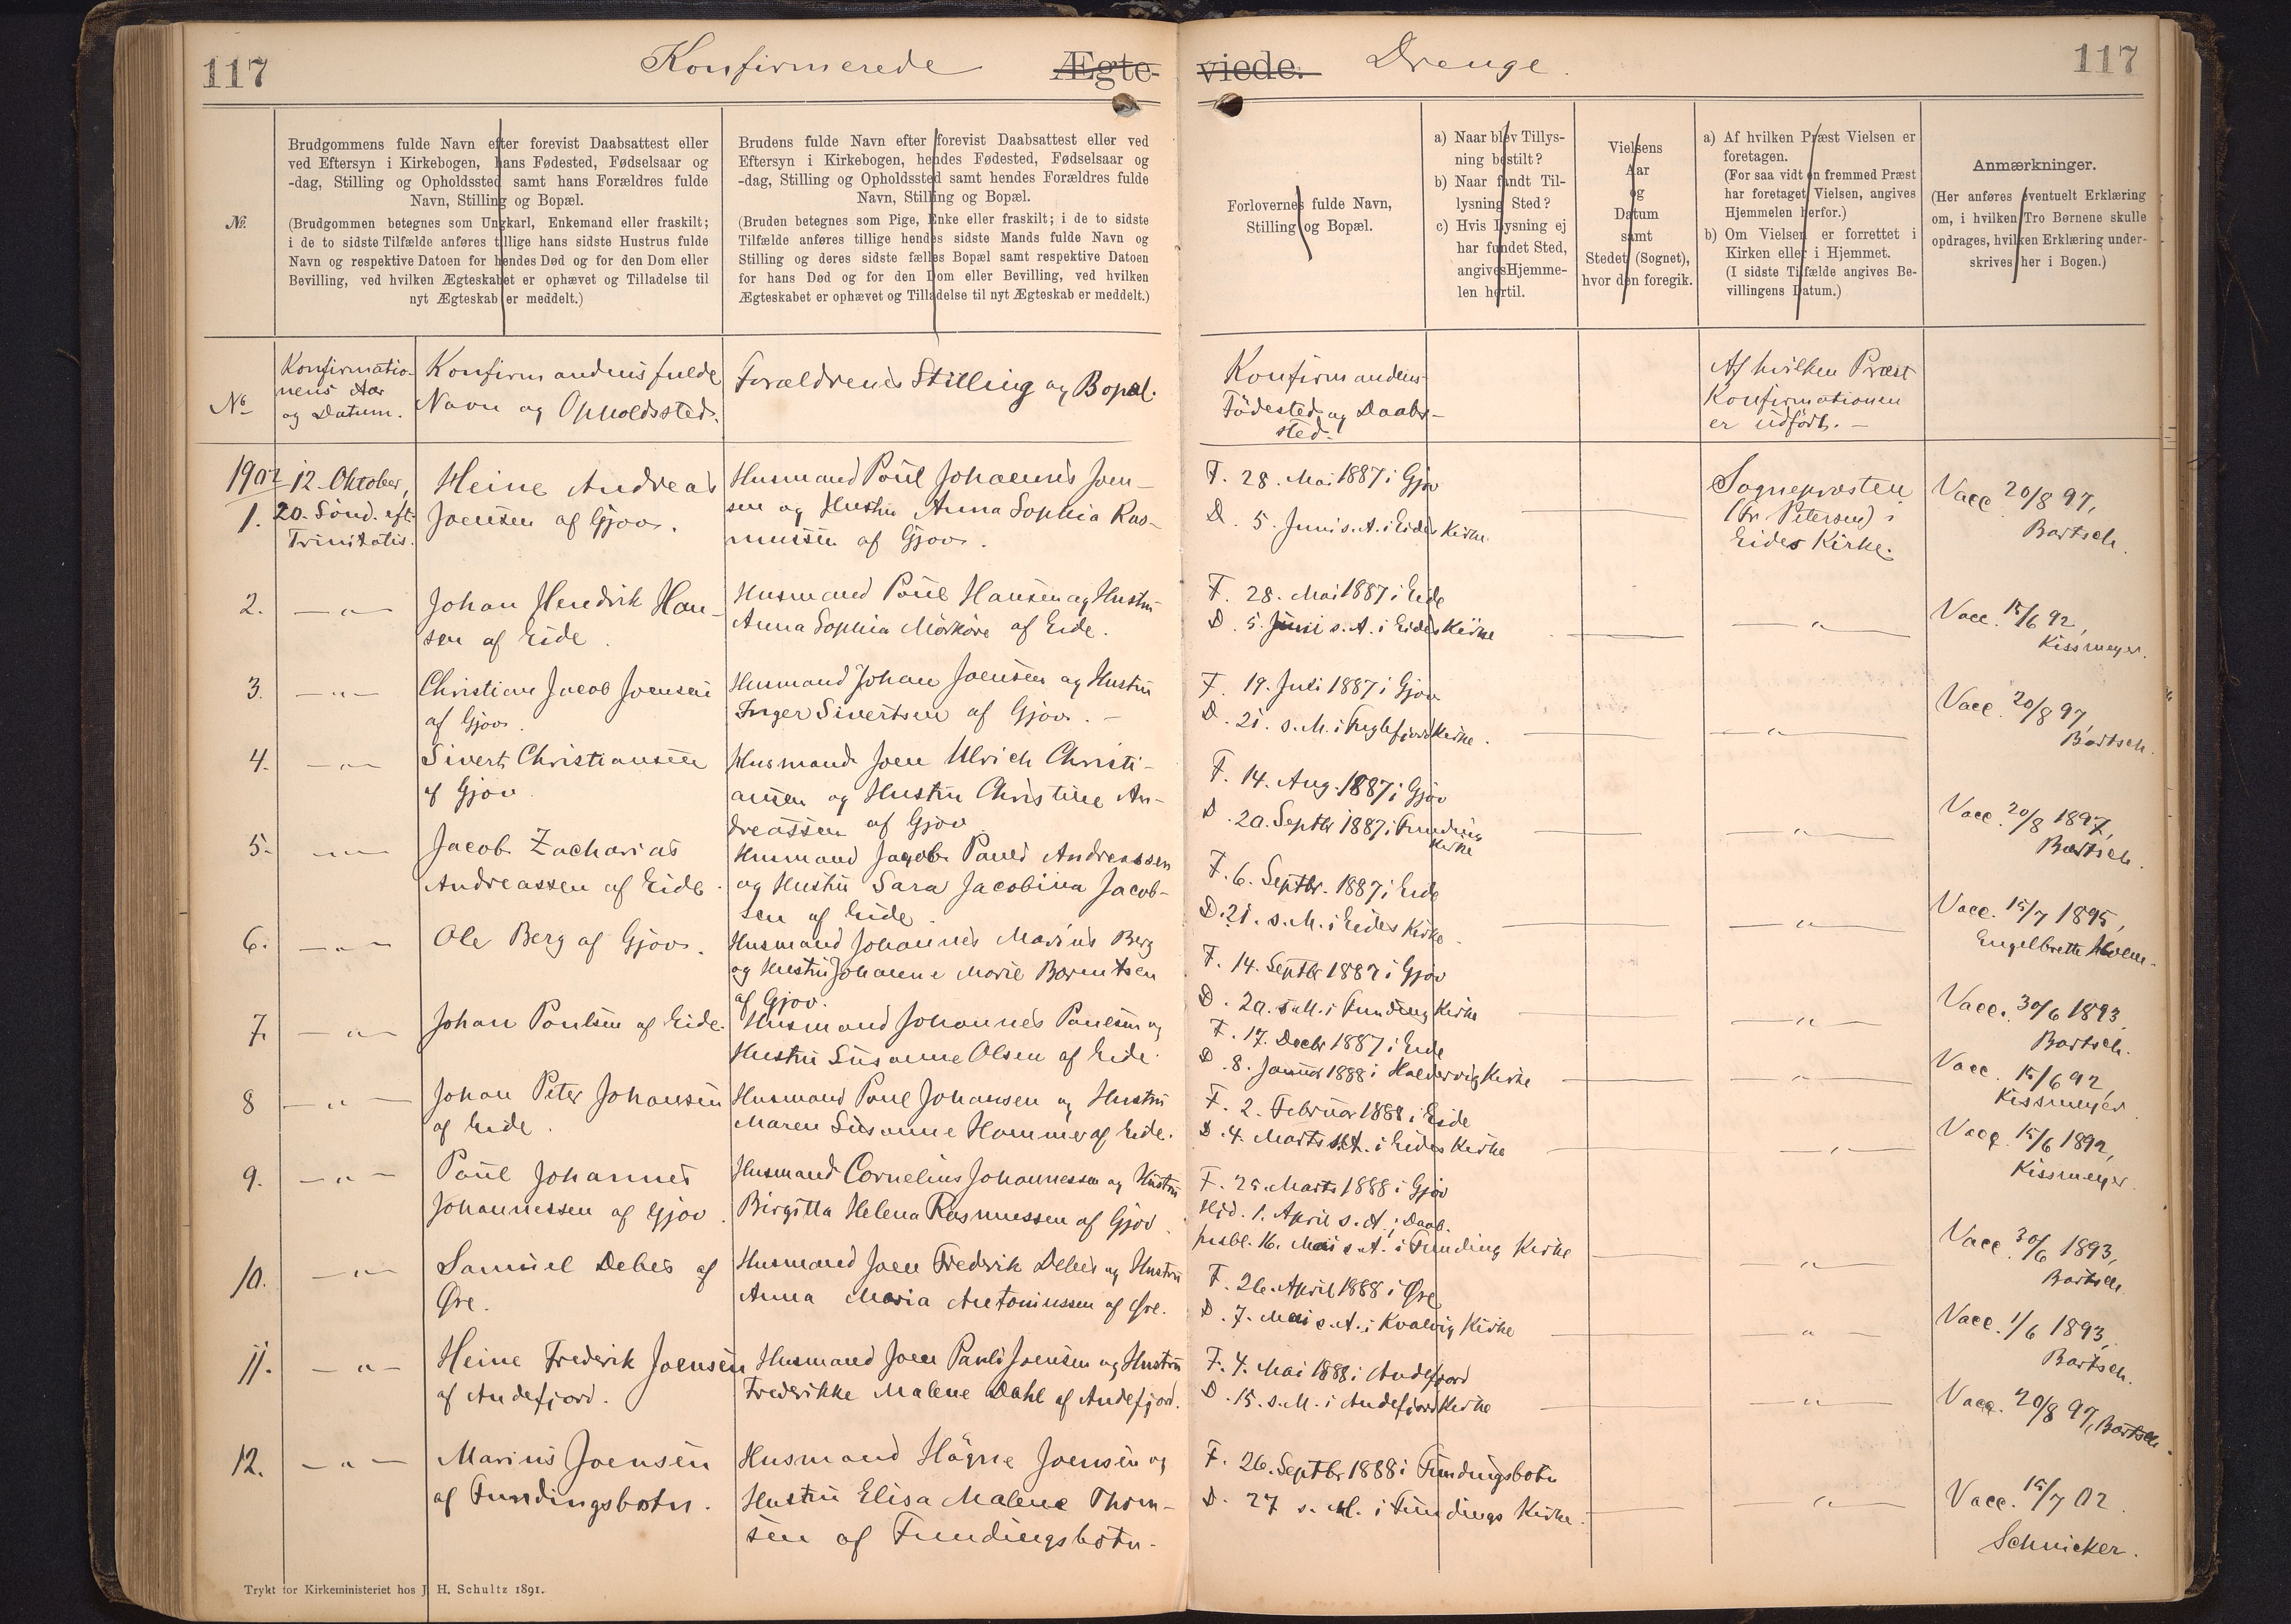 117
Konfirmerede Ægteviede. Drenge.
117
Brudgommens fulde Navn efter forevist Daabsattest eller
ved Eftersyn i Kirkebogen, hans Fødested, Fødselsaar og
-dag, Stilling og Opholdssted samt hans Forældres fulde
Navn, Stilling og Bopæl.
№.
(Brudgommen betegnes som Ungkarl, Enkemand eller fraskilt;
i de to sidste Tilfælde anføres tillige hans sidste Hustrus fulde
Navn og respektive Datoen for hendes Død og for den Dom eller
Bevilling, ved hvilken Ægteskabet er ophævet og Tilladelse til
nyt Ægteskab er meddelt.)
Brudens fulde Navn efter forevist Daabsattest eller ved
Eftersyn i Kirkebogen, hendes Fødested, Fødselsaar og
-dag, Stilling og Opholdssted samt hendes Forældres fulde
Navn, Stilling og Bopæl.
(Bruden betegnes som Pige, Enke eller fraskilt; i de to sidste
Tilfælde anføres tillige hendes sidste Mands fulde Navn og
Stilling og deres sidste fælles Bopæl samt respektive Datoen
for hans Død og for den Dom eller Bevilling, ved hvilken
Ægteskabet er ophævet og Tilladelse til nyt Ægteskab er meddelt.)
Forlovernes fulde Navn,
Stilling og Bopæl.
a) Naar blev Tillys-
ning bestilt?
b) Naar fandt Til-
lysning Sted?
c) Hvis Lysning ej
har fundet Sted,
angives Hjemme-
len hertil.
Vielsens
Aar
og
Datum
samt
Stedet (Sognet),
hvor den foregik.
a) Af hvilken Præst Vielsen er
foretagen.
(For saa vidt en fremmed Præst
har foretaget Vielsen, angives
Hjemmelen herfor.)
b) Om Vielsen er forrettet i
Kirken eller i Hjemmet.
(I sidste Tilfælde angives Be-
villingens Datum.)
Anmærkninger.
(Her anføres eventuelt Erklæring
om, i hvilken Tro Børnene skulle
opdrages, hvilken Erklæring under-
skrives her i Bogen.)
No
Konfirmatio-
nens Aar
og Datum.
Konfirmandens fulde
Navn og Opholdssted.
Forældrenes Stilling og Bopæl.
Konfirmandens
Födested og Daabs-
sted.
Af hvilken Præst
Konfirmationen
er udfört. —
1902
1.
12. Oktober,
20. Sönd. eft.
Trinitatis.
Heine Andreas
Joensen af Gjov.
Husmand Poul Johannes Joen-
sen og Hustru Anna Sophia Ras-
mussen af Gjov.
F. 28. Mai 1887 i Gjov
D. 5. Juni s. A. i Eides Kirke
Sognepræsten
(Fr. Petersen) i
Eides Kirke.
Vacc. 20/8 97,
Bartsch.
2. — " —
Johan Hendrik Han-
sen af Eide.
Husmand Poul Hansen og Hustru
Anna Sophia Mörköre af Eide.
F. 28. Mai 1887 i Eide
D. 5. Juni s. A. i Eides Kirke
— " —
Vacc. 15/6 92,
Kissmeyer.
3. — " —
Christian Jacob Joensen
af Gjov.
Husmand Johan Joensen og Hustru
Inger Sivertsen af Gjov. —
F. 19. Juli 1887 i Gjov
D. 21. s. M. i Fuglefjord Kirke.
— " —
Vacc. 20/8 97,
Bartsch.
4. — " —
Sivert Christiansen
af Gjov
Husmand Joen Ulrich Christi-
ansen og Hustru Christine An-
dreassen af Gjov
F. 14. Aug. 1887 i Gjov
D. 20. Septbr 1887 i Funding
Kirke
— " —
Vacc. 20/8 1897,
Bartsch.
5. — " —
Jacob Zacharias
Andreassen af Eide.
Husmand Jacob Pauli Andreassen
og Hustru Sara Jacobina Jacob-
sen af Eide.
F. 6. Septbr. 1887 i Eide
D. 21. s. M. i Eides Kirke
— " —
Vacc. 15/7 1895,
Engelbrette Holm.
6. — " —
Ole Berg af Gjov.
Husmand Johannes Marius Berg
og Hustru Johanne Marie Barentsen
af Gjov.
F. 14. Septbr 1887 i Gjov
D. 20. s. M. i Funding Kirke
— " —
Vacc. 30/6 1893,
Bartsch.
7. — " —
Johan Poulsen af Eide.
Husmand Johannes Paulsen og
Hustru Susanne Olsen af Eide.
F. 17. Decbr 1887 i Eide
D. 8. Januar 1888 i Haldervig Kirke
— " —
Vacc. 15/6 92,
Kissmeyer
8 — " —
Johan Peter Johansen
af Eide.
Husmand Poul Johansen og Hustru
Maren Susanne Hammer af Eide.
F. 2. Februar 1888 i Eide
D. 4. Marts s. A. i Eides Kirke
— " —
Vacc. 15/6 1892,
Kissmeyer.
9. — " —
Poul Johannes
Johannessen af Gjov.
Husmand Cornelius Johannessen og Hustru
Birgitta Helena Rasmussen af Gjov.
F. 25. Marts 1888 i Gjov
Hjd. 1. April s. A., Daab.
presbl. 16. Mai s. A. i Funding Kirke
— " —
Vacc. 30/6 1893,
Bartsch.
10. — " —
Samuel Debes af
Öre.
Husmand Joen Frederik Debes og Hustru
Anna Maria Antoniussen af Öre.
F. 26. April 1888 i Öre
D. 7. Mai s. A. i Kvalvig Kirke
— " —
Vacc. 1/6 1893,
Bartsch.
11. — " —
Heine Frederik Joensen
af Andefjord.
Husmand Joen Pauli Joensen og Hustru
Frederikke Malene Dahl af Andefjord.
F. 4. Mai 1888 i Andefjord
D. 15. s. M. i Andefjord Kirke
— " —
Vacc. 20/8 97, Bartsch.
12. — " —
Marius Joensen
af Fundingsbotn.
Husmand Högne Joensen og
Hustru Elisa Malene Thom-
sen af Fundingsbotn.
F. 26. Septbr 1888 i Fundingsbotn
D. 27 s. M. i Fundings Kirke.
— " —
Vacc. 15/7 02.
Schnicker.
Trykt for Kirkeministeriet hos J. H. Schultz 1891.